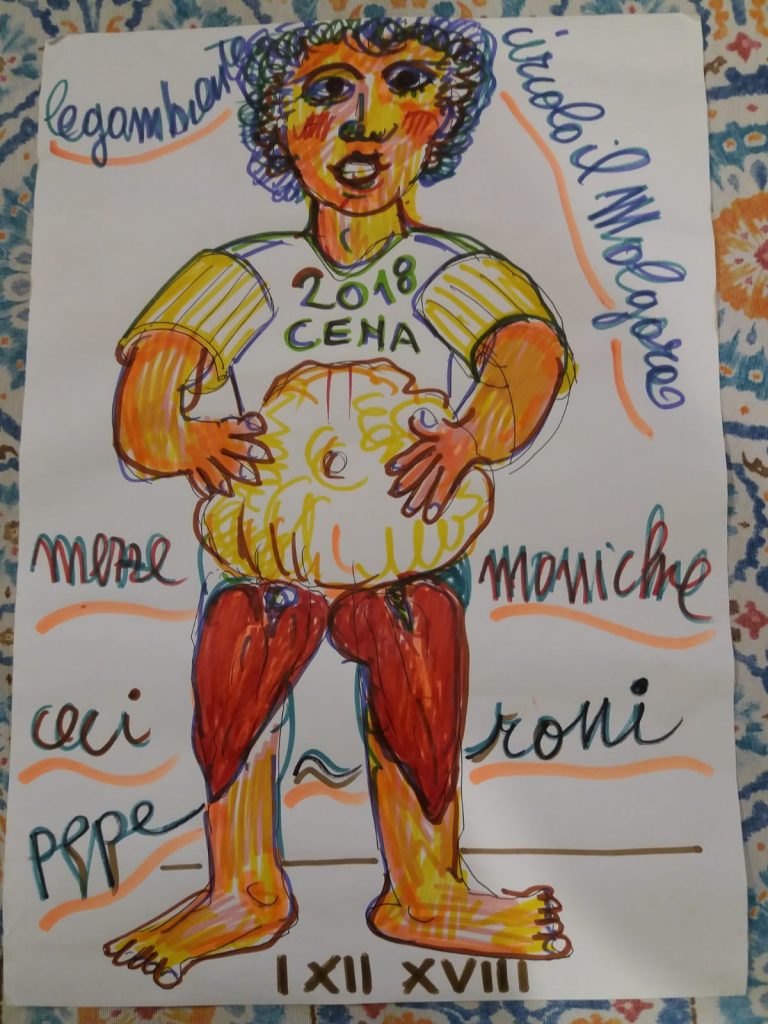 legambiente
circolo il Molgora
2018
CENA
mezze maniche
ceci ~ roni
pepe
I XII XVIII